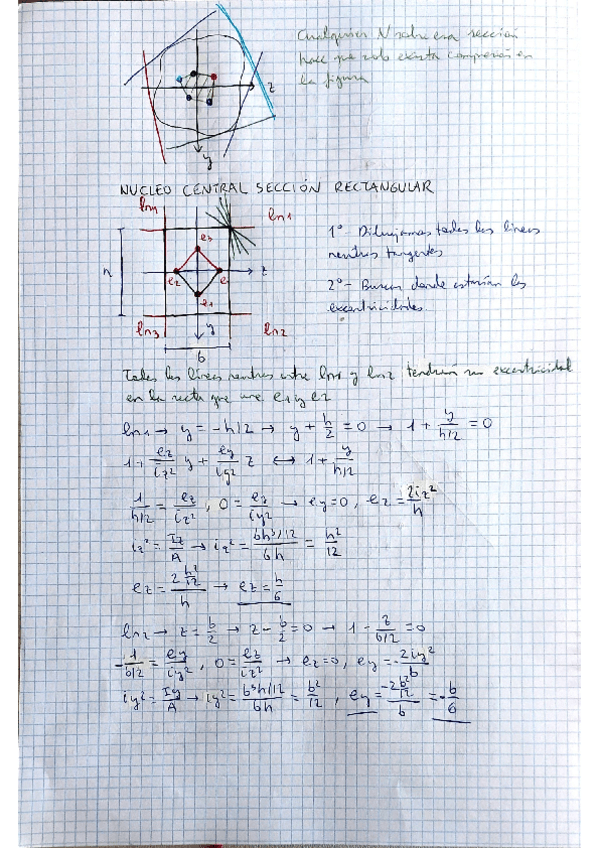 Cualquier N sobre esa sección
hace que solo exista compresión en
la figura
z
y
NUCLEO CENTRAL SECCIÓN RECTANGULAR
ln4
ln1
e3
h
e2
e
z
e1
ln3
y
ln2
b
1º Dibujamos todas las líneas
neutras tangentes
2º- Buscar donde estarían las
excentricidades.
Todas las líneas neutras entre ln1 y ln2 tendrán su excentricidad
en la recta que une e1 y e2
ln1 → y = -h/2 → y + h/2 = 0 → 1 + y/(h/2) = 0
1 + ez/iz² y + ey/iy² z ↔ 1 + y/(h/2)
1/(h/2) = ez/iz², 0 = ey/iy² → ey=0, ez = 2iz²/h
iz² = Iz/A → iz² = (bh³/12)/(bh) = h²/12
ez = (2 h²/12)/h → ez = h/6
ln2 → z = b/2 → z - b/2 = 0 → 1 - z/(b/2) = 0
-1/(b/2) = ey/iy², 0 = ez/iz² → ez=0, ey = -2iy²/b
iy² = Iy/A → iy² = (b³h/12)/(bh) = b²/12, ey = (-2b²/12)/b = -b/6